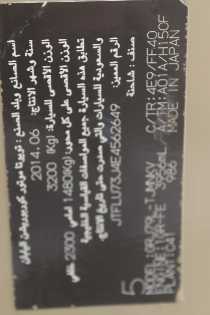 اسم الصانع وبلد الصنع : تويوتا موتور كوربوريشن اليابان
سنة وشهر الانتاج: 2014.06
الوزن الاقصى للسيارة: 3200 (Kg)
الوزن الاقصى على كل محور: (Kg) 1480 امامي 2300 خلفي
تطابق هذه السيارة جميع المواصفات القياسية الخليجية
والسعودية للسيارات والتي صدرت حتى تاريخ الانتاج.
الرقم المميز: JTFLU73J4E4562649
صنف : شاحنة
MODEL:GRJ79 C/TM:4E9/FF40
ENGINE:1GR-FE 3956mL A/TM:A01A/H150F
PLANT:C41 986 MADE IN JAPAN